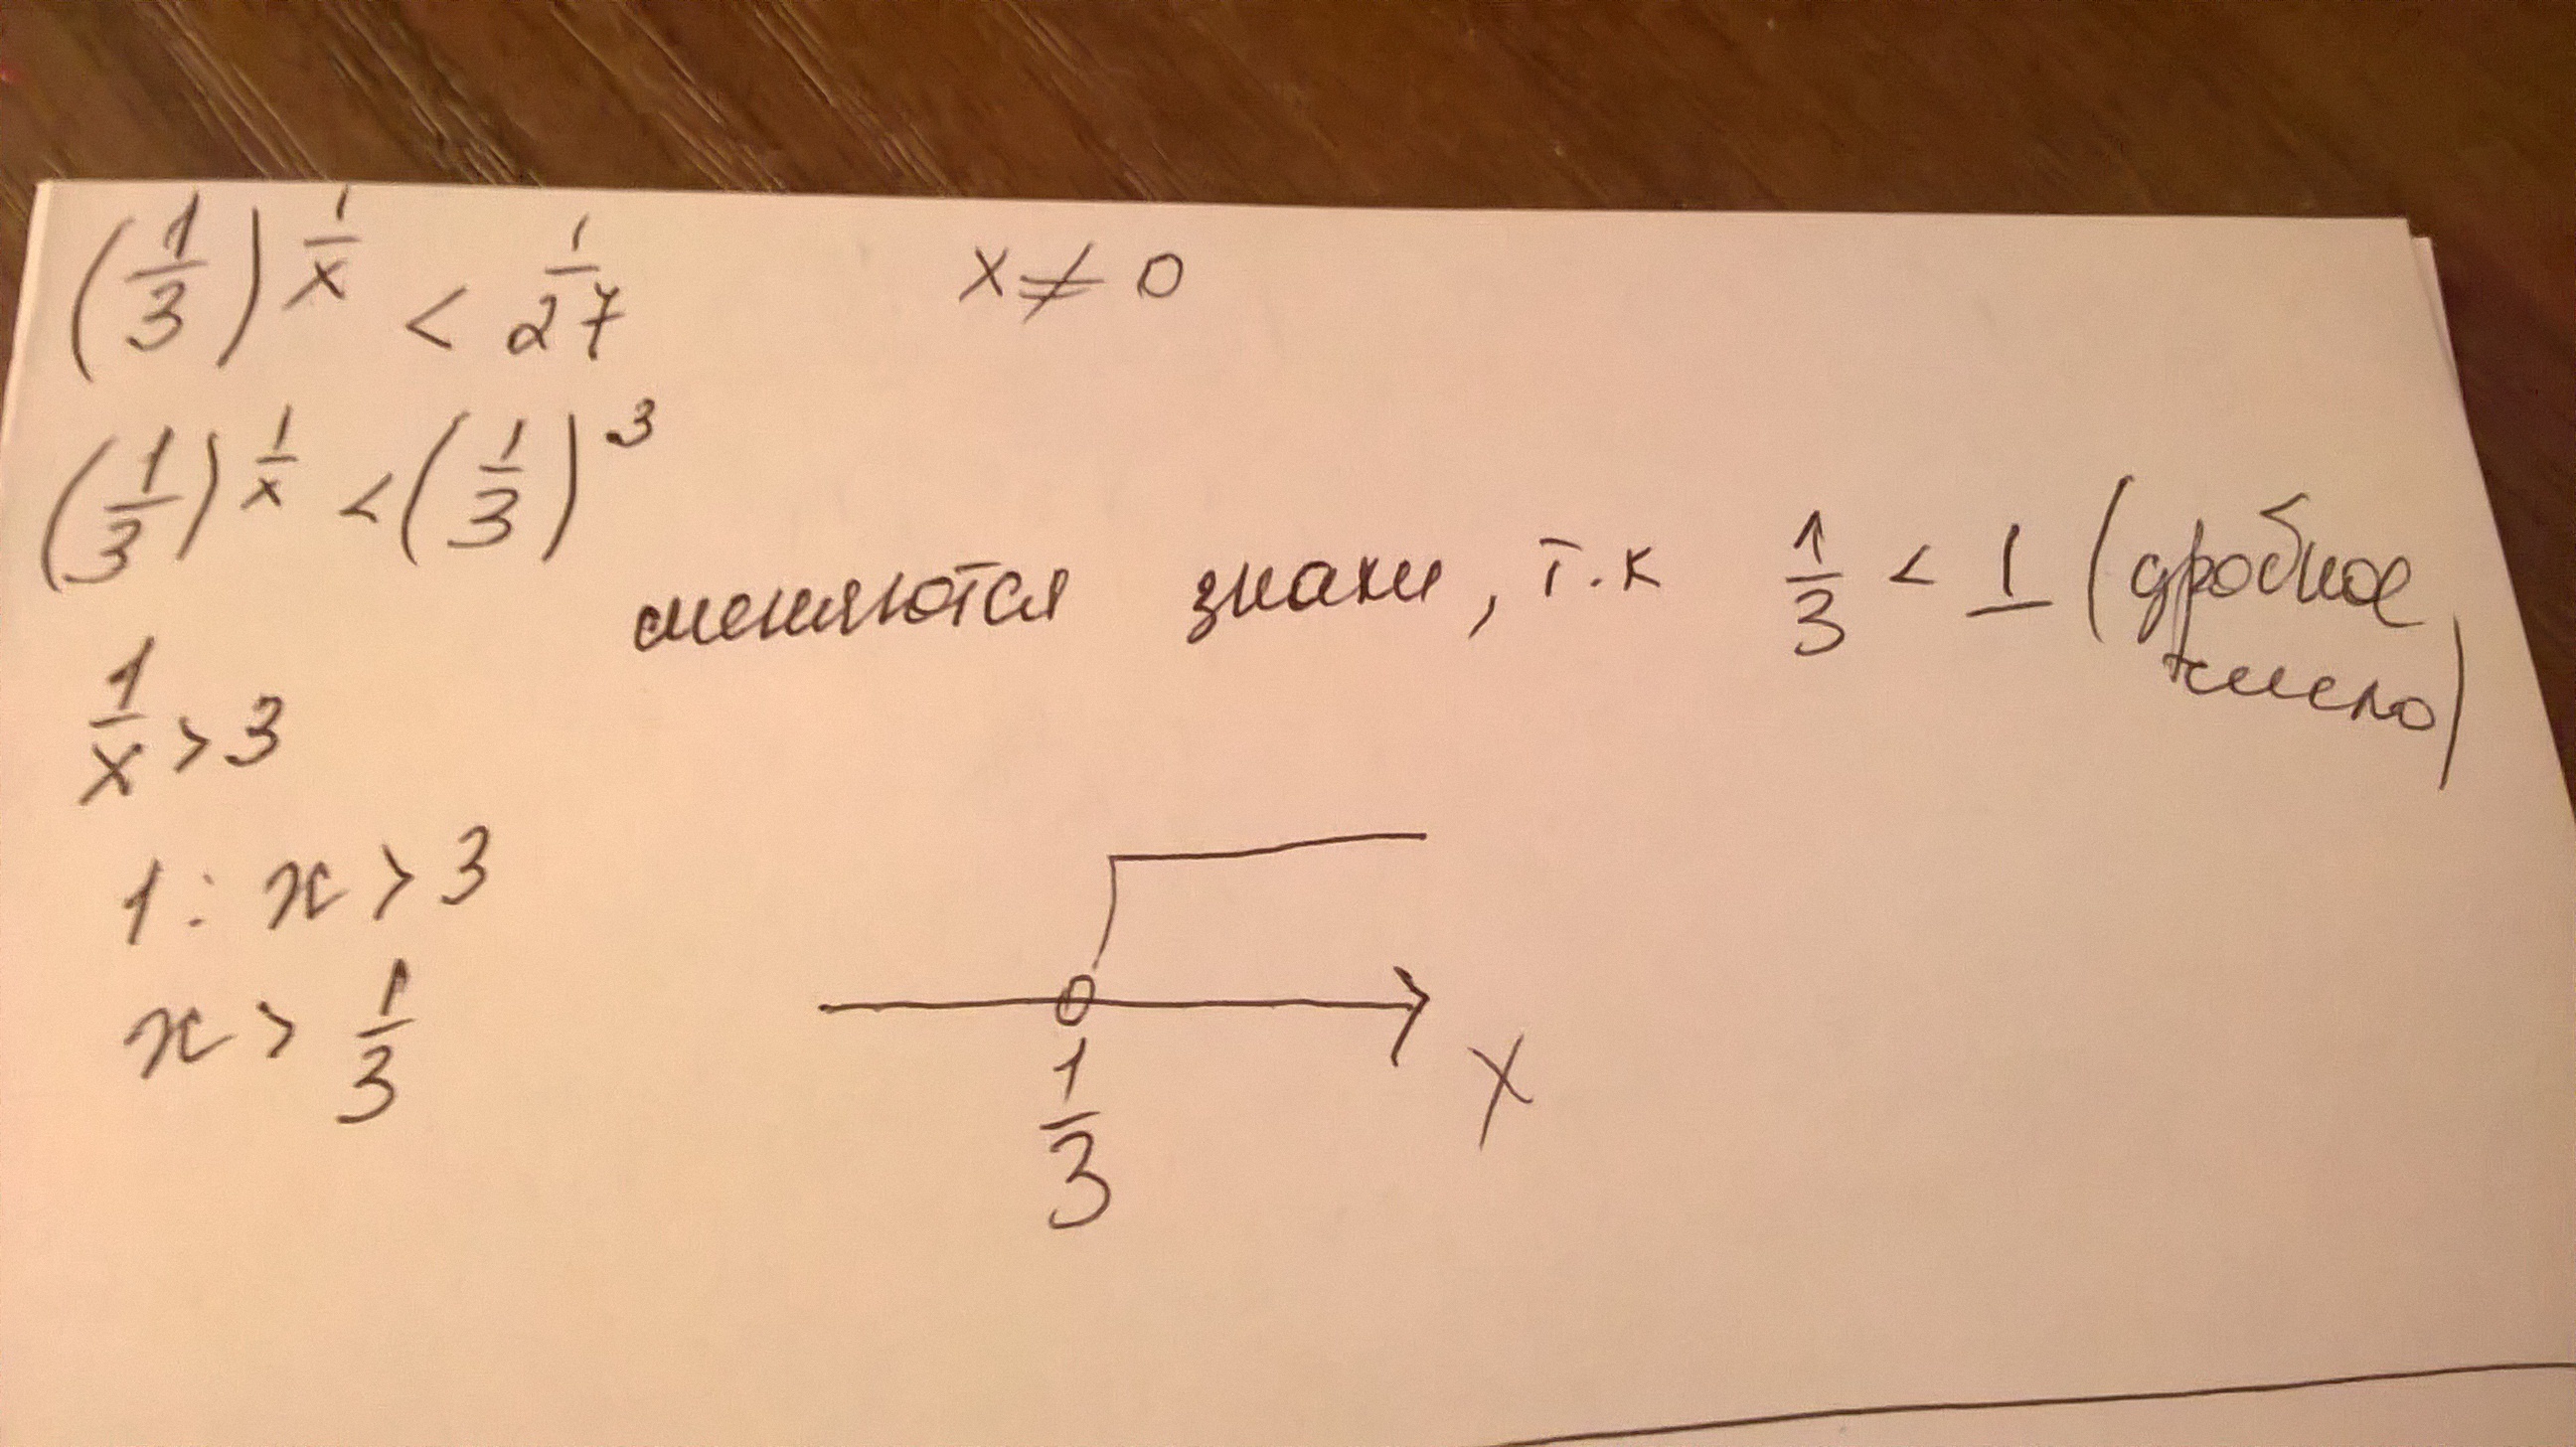 (1/3)^(1/x) < 1/27 x ≠ 0
(1/3)^(1/x) < (1/3)^3
меняются знаки, т.к 1/3 < 1 (дробное
число)
1/x > 3
1 : x > 3
x > 1/3
x
1/3